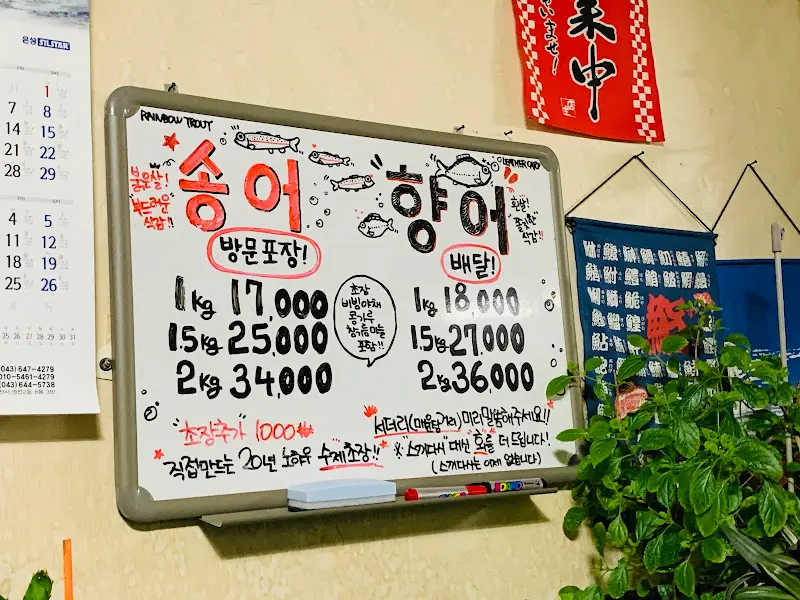 은성 SILSTAR
1
7 8
14 15
21 22
28 29
4 5
11 12
18 19
25 26
25 26 27 28 29 30 31
(043) 647-4279
010-5461-4279
(043) 644-5738
RAINBOW TROUT
송어
붉은살!
부드러운
식감!!
방문포장!
1kg 17,000
1.5kg 25,000
2kg 34,000
초장
비빔야채
콩가루
참기름 마늘
포함!!
LEATHER CARP
향어
흰살!
쫄깃한
식감!!
배달!
1kg 18,000
1.5kg 27,000
2kg 36,000
"초장추가" 1000
직접만드는 20년 노하우 수제초장!!
서더리(매운탕거리) 미리말씀해주세요!!
※"스끼다시" 대신 회를 더 드립니다!
(스끼다시는 이제 없습니다)
いませ!
業中